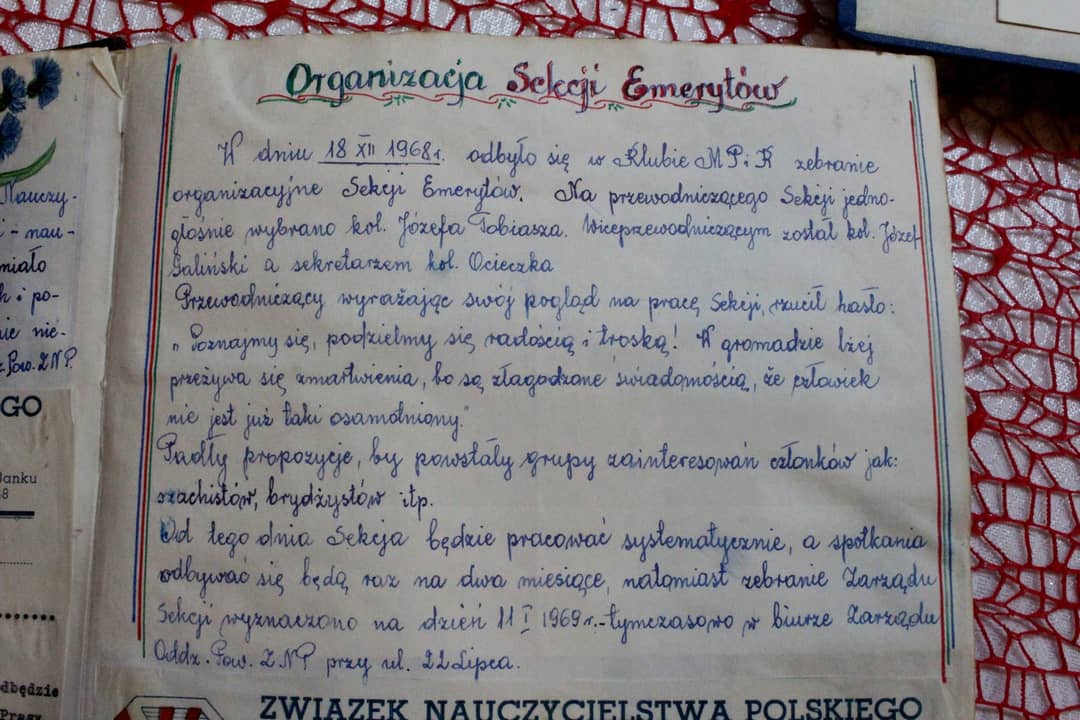 Organizacja Sekcji Emerytów
W dniu 18 XII 1968r. odbyło się w Klubie MPiK zebranie
organizacyjne Sekcji Emerytów. Na przewodniczącego Sekcji jedno-
głośnie wybrano kol. Józefa Tobiasza. Wiceprzewodniczącym został kol. Józef
Galiński a sekretarzem kol. Ocieczka
Przewodniczący wyrażając swój pogląd na pracę Sekcji, rzucił hasło:
„Poznajmy się, podzielmy się radością i troską! W gromadzie lżej
przeżywa się zmartwienia, bo są złagodzone świadomością, że człowiek
nie jest już taki osamotniony."
Padły propozycje, by powstały grupy zainteresowań członków jak:
szachistów, brydżystów itp.
Od tego dnia Sekcja będzie pracować systematycznie, a spotkania
odbywać się będą raz na dwa miesiące, natomiast zebranie Zarządu
Sekcji wyznaczono na dzień 11 I 1969r.-tymczasowo w biurze Zarządu
Oddz. Pow. ZNP przy ul. 22 Lipca.
ZWIĄZEK NAUCZYCIELSTWA POLSKIEGO
Nauczy-
i - nau-
miało
h i po-
nie nie-
Pow. ZNP.
GO
Banku
8
dbędzie
Prasy